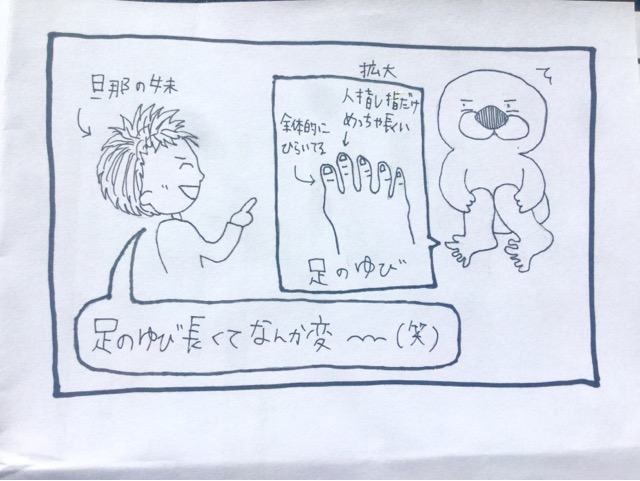 旦那の妹
拡大
人指し指だけ
めっちゃ長い
全体的に
ひらいてる
足のゆび
足のゆび長くてなんか変〜〜(笑)